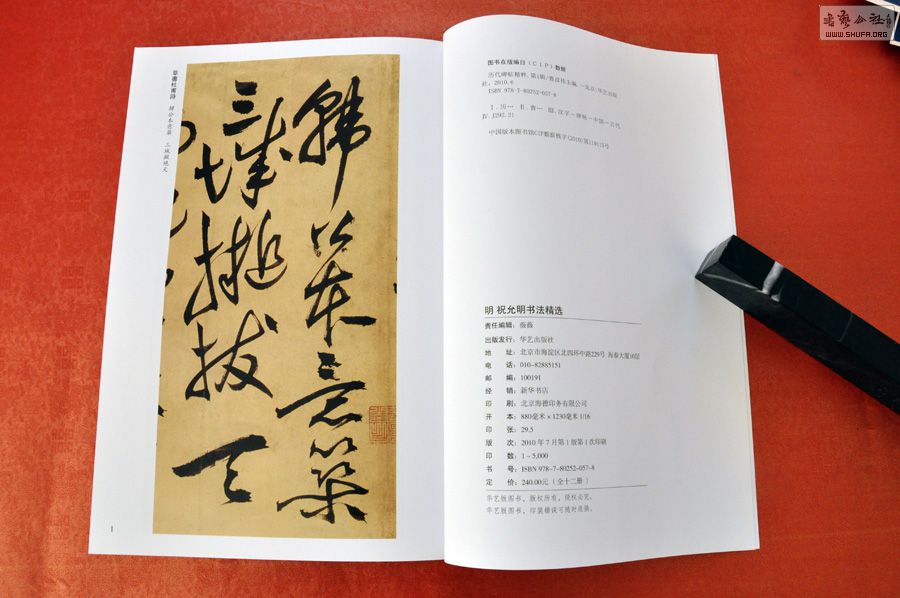 草书杜甫诗 韩公本意筑 三城拟绝天
韩公本意筑
三城擬拔天
1
图书在版编目(CIP)数据
历代碑帖精粹.第1辑/
社,2010.6
ISBN 978-7-80252-057-8
Ⅰ.历… Ⅱ.曹… Ⅲ.汉字-碑帖-中国-古代
Ⅳ.J292.21
中国版本图书馆CIP数据核字(2010)第119113号
明 祝允明书法精选
责任编辑:薇薇
出版发行:华艺出版社
地 址:北京市海淀区北四环中路229号 海泰大厦10层
电 话:010-82885151
邮 编:100191
经 销:新华书店
印 刷:北京海德印务有限公司
开 本:880毫米×1230毫米 1/16
印 张:29.5
版 次:2010年7月第1版第1次印刷
印 数:1~5,000
书 号:ISBN 978-7-80252-057-8
定 价:240.00元(全十二册)
华艺版图书,版权所有,侵权必究。
华艺版图书,印装错误可随时退换。
書藝公社
WWW.SHUFA.ORG